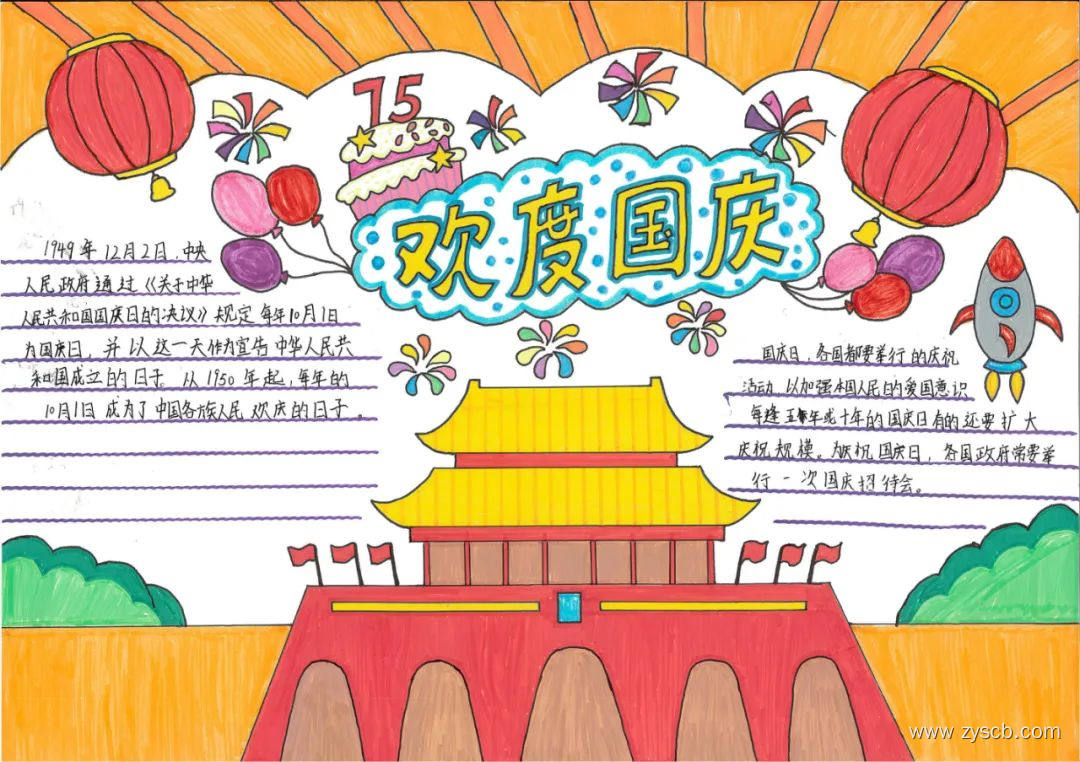 75
欢度国庆
1949年12月2日,中央
人民政府通过《关于中华
人民共和国国庆日的决议》规定每年10月1日
为国庆日,并以这一天作为宣告中华人民共
和国成立的日子 从1950年起,每年的
10月1日成为了中国各族人民欢庆的日子。
国庆日,各国都要举行的庆祝
活动 以加强本国人民的爱国意识
每逢五年或十年的国庆日有的还要扩大
庆祝规模。为庆祝国庆日,各国政府常要举
行一次国庆招待会。
www.zyscb.com